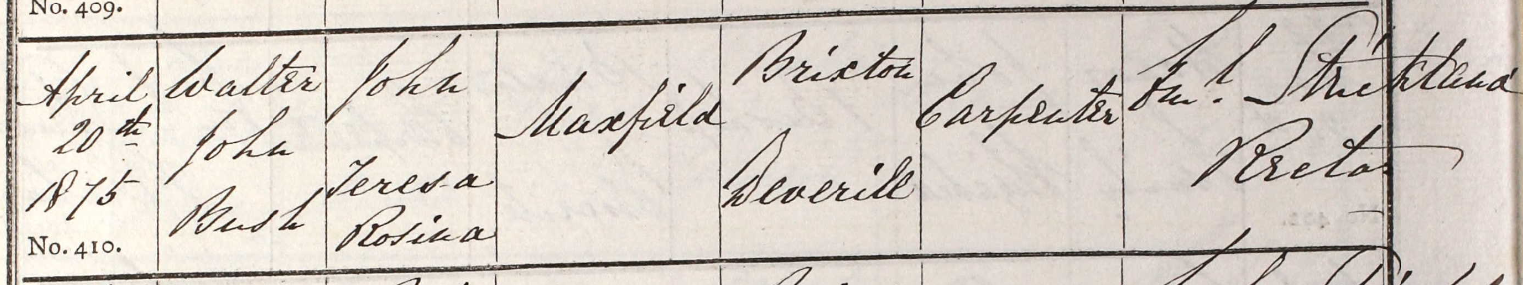 No. 409.
April 20th 1875
No. 410.
Walter John Bush
John
Teresa Rosina
Maxfield
Brixton Deverill
Carpenter
Strickland
Rector